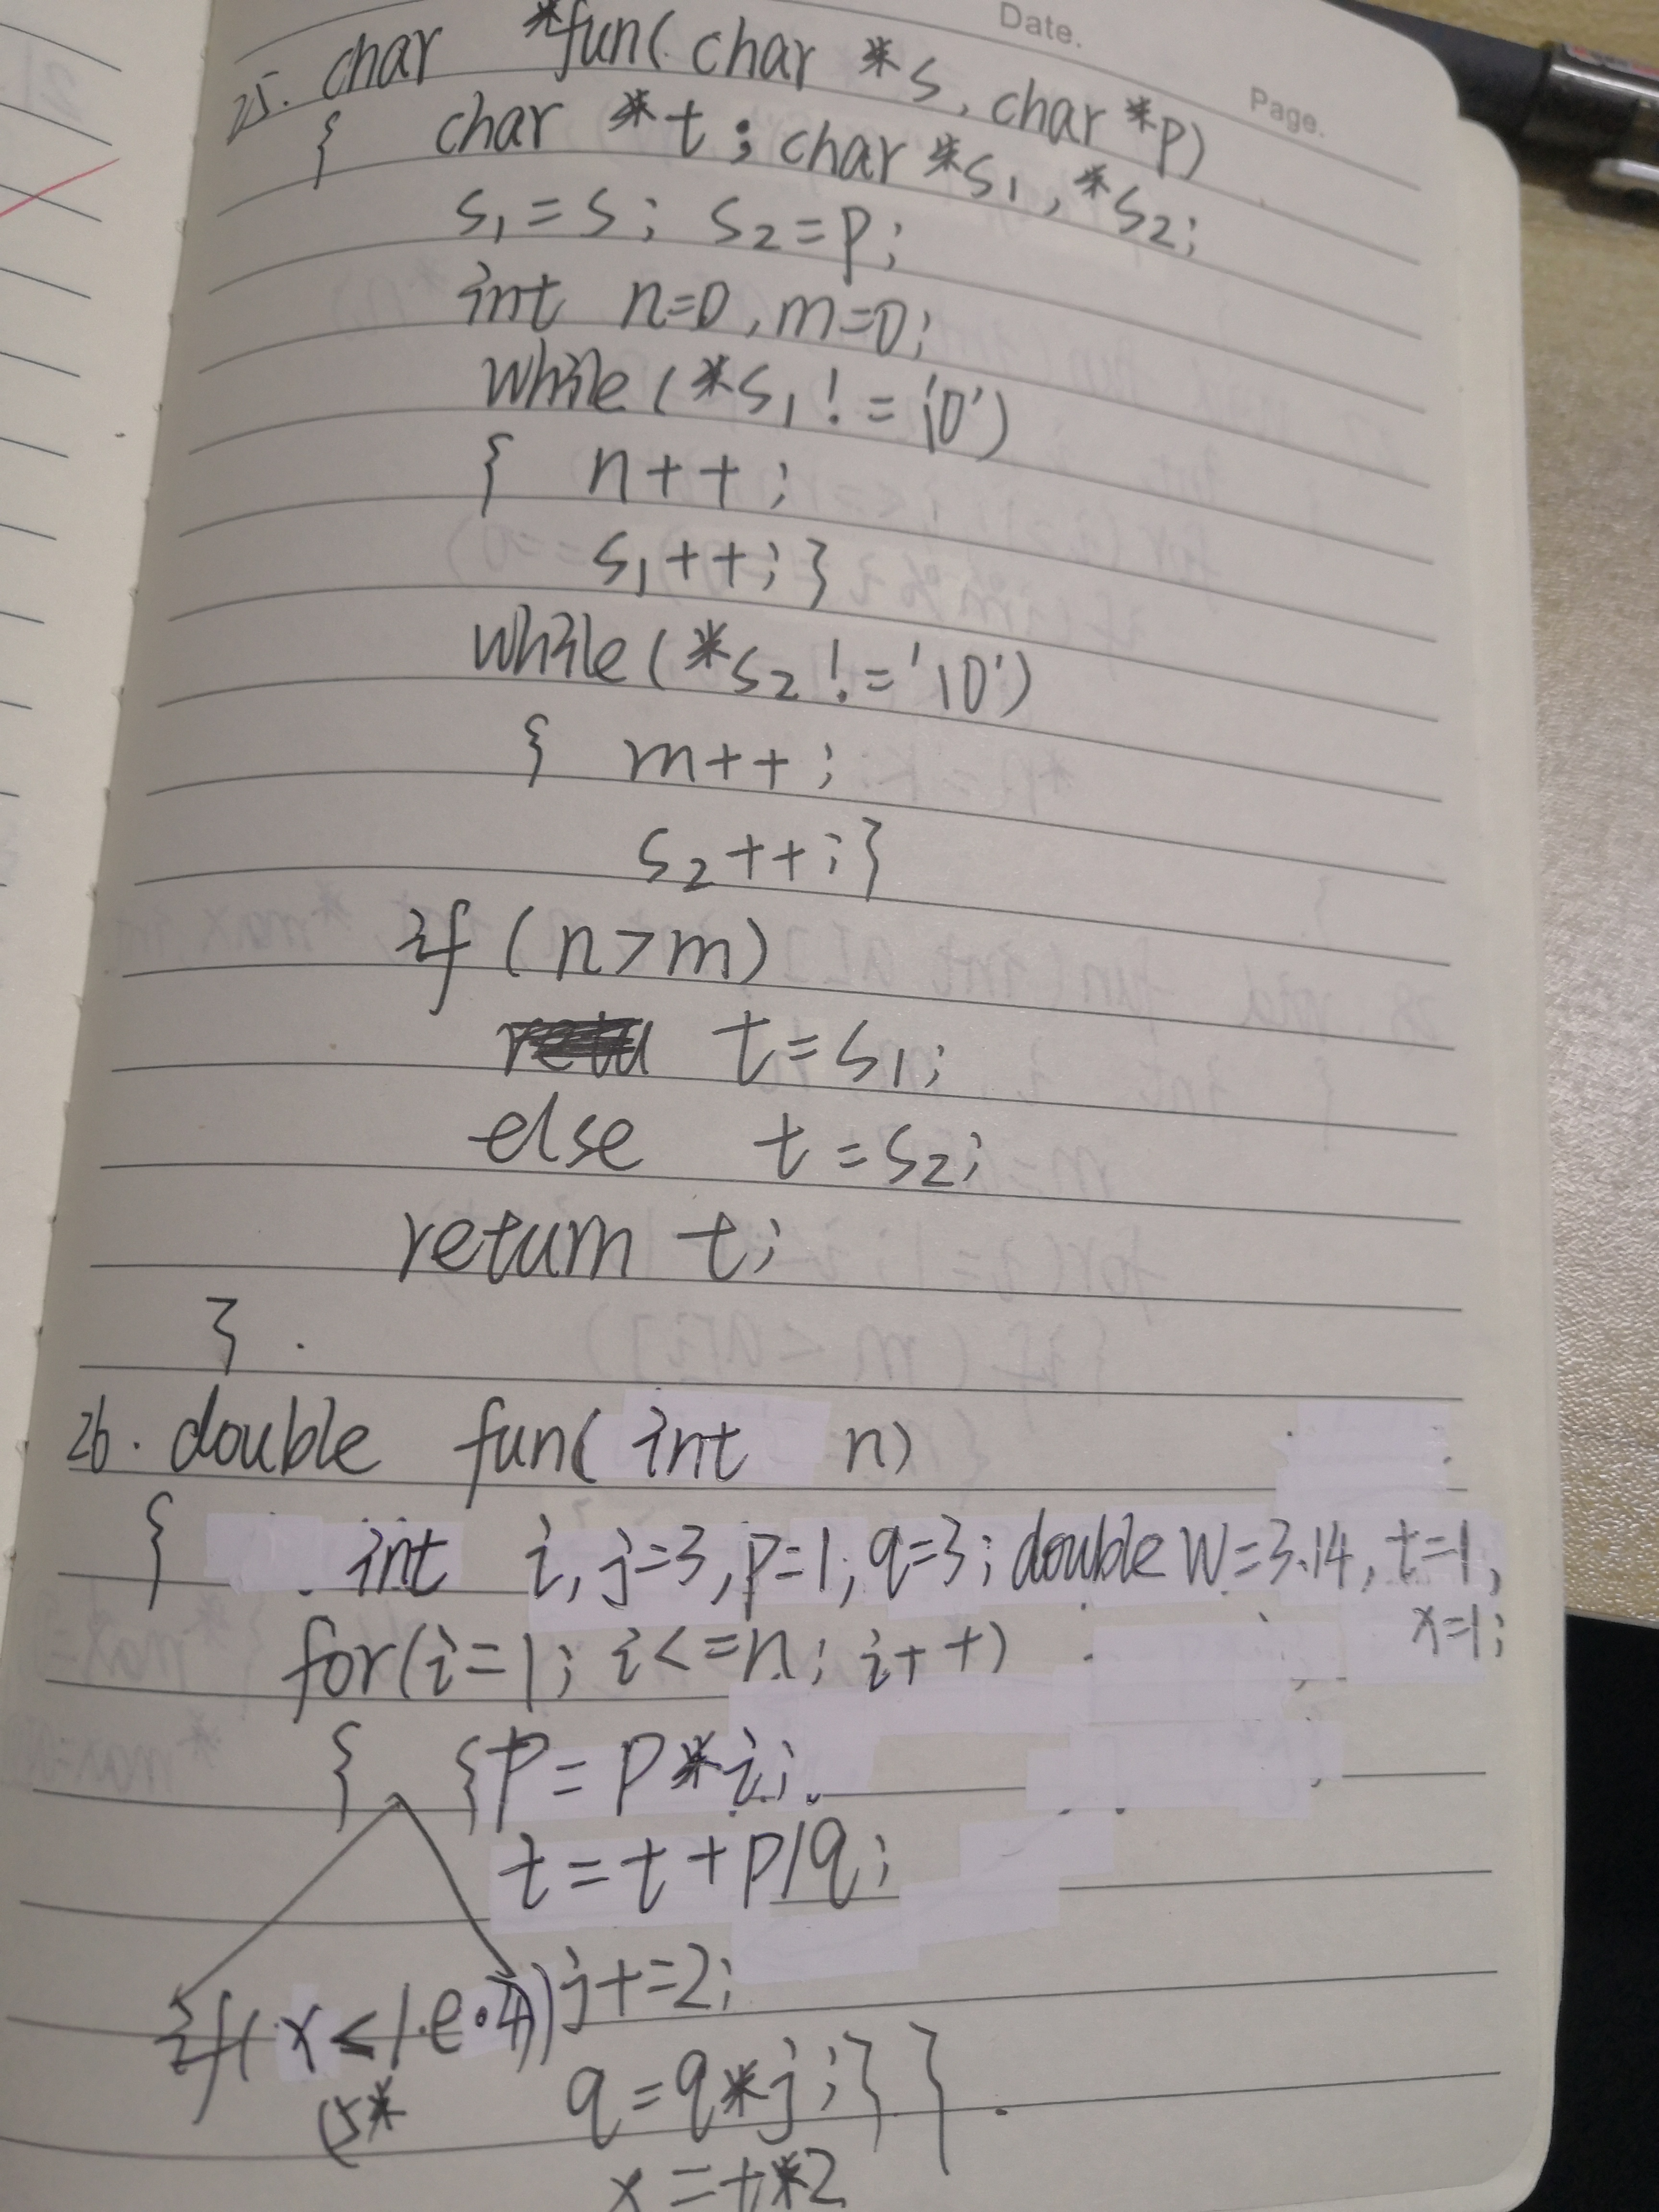 Date.
Page.
25. char *fun(char *s, char *p)
{ char *t; char *s1, *s2;
s1=s; s2=p;
int n=0, m=0;
while(*s1!='\0')
{ n++;
s1++;}
while(*s2!='\0')
{ m++;
s2++;}
if(n>m)
t=s1;
else t=s2;
return t;
}.
26. double fun(int n)
{ int i, j=3, p=1, q=3; double w=3.14, t=1,
x=1;
for(i=1; i<=n; i++)
{ {p=p*i;
t=t+p/q;
j+=2;
if(x<1.e-4)
(5*
q=q*j;}}.
x=t*2